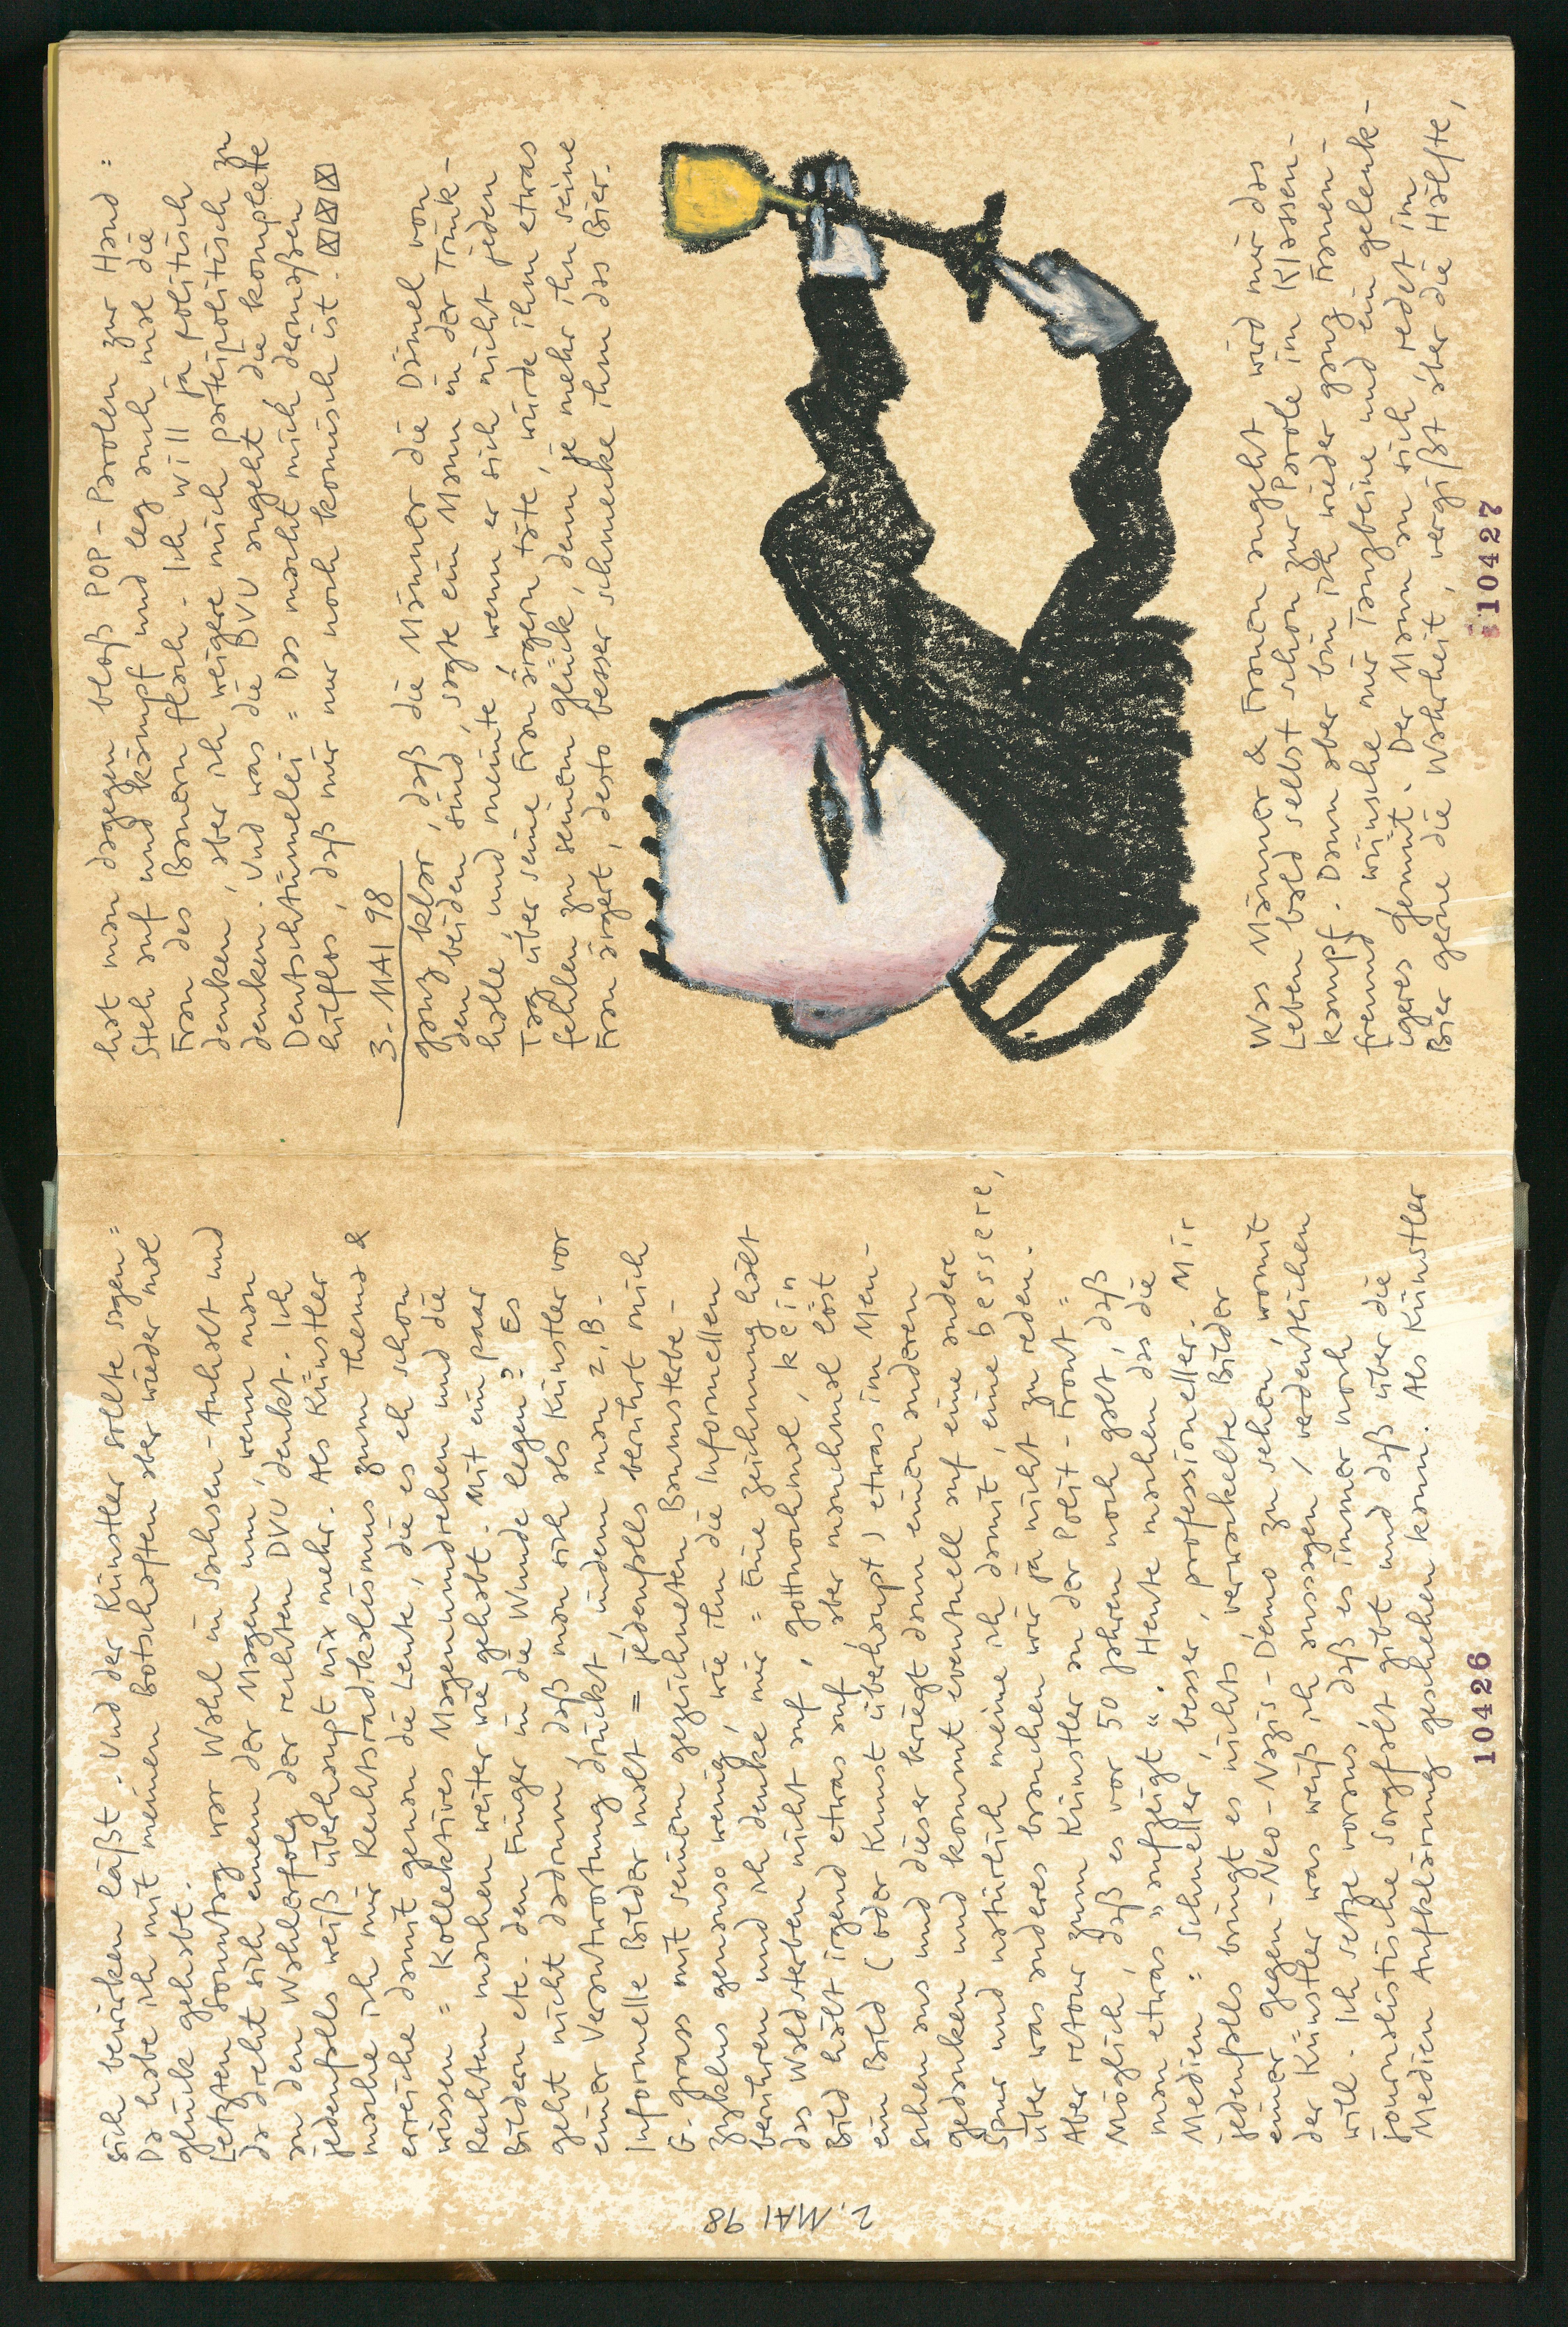 2. MAI 98
sich bewirken läßt. Und der Künstler sollte sagen =
Da habe ich mit meinen Botschaften aber wieder mal
Glück gehabt.
Letzten Sonntag war Wahl in Sachsen-Anhalt und
da dreht sich einem der Magen um, wenn man
an den Wahlerfolg der rechten DVU denkt. Ich
jedenfalls weiß überhaupt nix mehr. Als Künstler
mache ich mir Rechtsradikalismus zum Thema &
erreiche damit genau die Leute, die es eh schon
wissen = Kollektives Magenumdrehen und die
Rechten machen weiter wie gehabt. Mit ein paar
Bildern etc. den Finger in die Wunde legen? Es
geht nicht darum, daß man sich als Künstler vor
einer Verantwortung drückt, indem man z.B.
Informelle Bilder malt = jedenfalls berührt mich
G. Grass mit seinem gezeichneten Baumsterbe-
Zyklus genauso wenig, wie ihn die Informellen
berühren und ich denke mir = Eine Zeichnung hält
das Waldsterben nicht auf, gottnochmal, kein
Bild hält irgend etwas auf, aber manchmal löst
ein Bild (oder Kunst überhaupt) etwas im Men-
schen aus und dieser kriegt dann einen anderen
Gedanken und kommt eventuell auf eine andere
Spur und natürlich meine ich damit, eine bessere,
über was anderes brauchen wir ja nicht zu reden.
Aber retour zum Künstler an der Polit-Front =
Möglich, daß es vor 50 Jahren noch galt, daß
man etwas „aufzeigt“. Heute machen das die
Medien = schneller, besser, professioneller. Mir
jedenfalls bringt es nichts verwackelte Bilder
einer gegen-Neo-Nazis-Demo zu sehen, womit
der Künstler was weiß ich aussagen / verdeutlichen
will. Ich setze voraus, daß es immer noch
journalistische Sorgfalt gibt und daß über die
Medien Aufklärung geschehen kann. Als Künstler
10426
hat man dagegen bloß POP-Parolen zur Hand =
Steh auf und kämpf und leg auch mal die
Frau des Bauern flach. Ich will ja politisch
denken, aber ich weigere mich parteipolitisch zu
denken. Und was die DVU angeht die komplette
Deutschtümelei = Das macht mich dermaßen
hilflos, daß mir nur noch komisch ist. ☒☒☒☒
3. MAI 98
Ganz klar, daß die Männer die Dämel von
den beiden sind, sagte ein Mann in der Trink-
halle, und meinte, wenn er sich nicht jeden
Tag über seine Frau ärgern täte, würde ihm etwas
fehlen zu seinem Glück, denn je mehr ihn seine
Frau ärgert, desto besser schmecke ihm das Bier.
Was Männer & Frauen angeht wird mir das
Leben bald selbst schon zur Parole im Klassen-
kampf. Dann aber bin ich wieder ganz Frauen-
freund, wünsche mir Tanzbeine und ein gelenk-
igeres Gemüt. Der Mann an sich redet im
Bier gerne die Wahrheit, vergißt aber die Hälfte,
10427